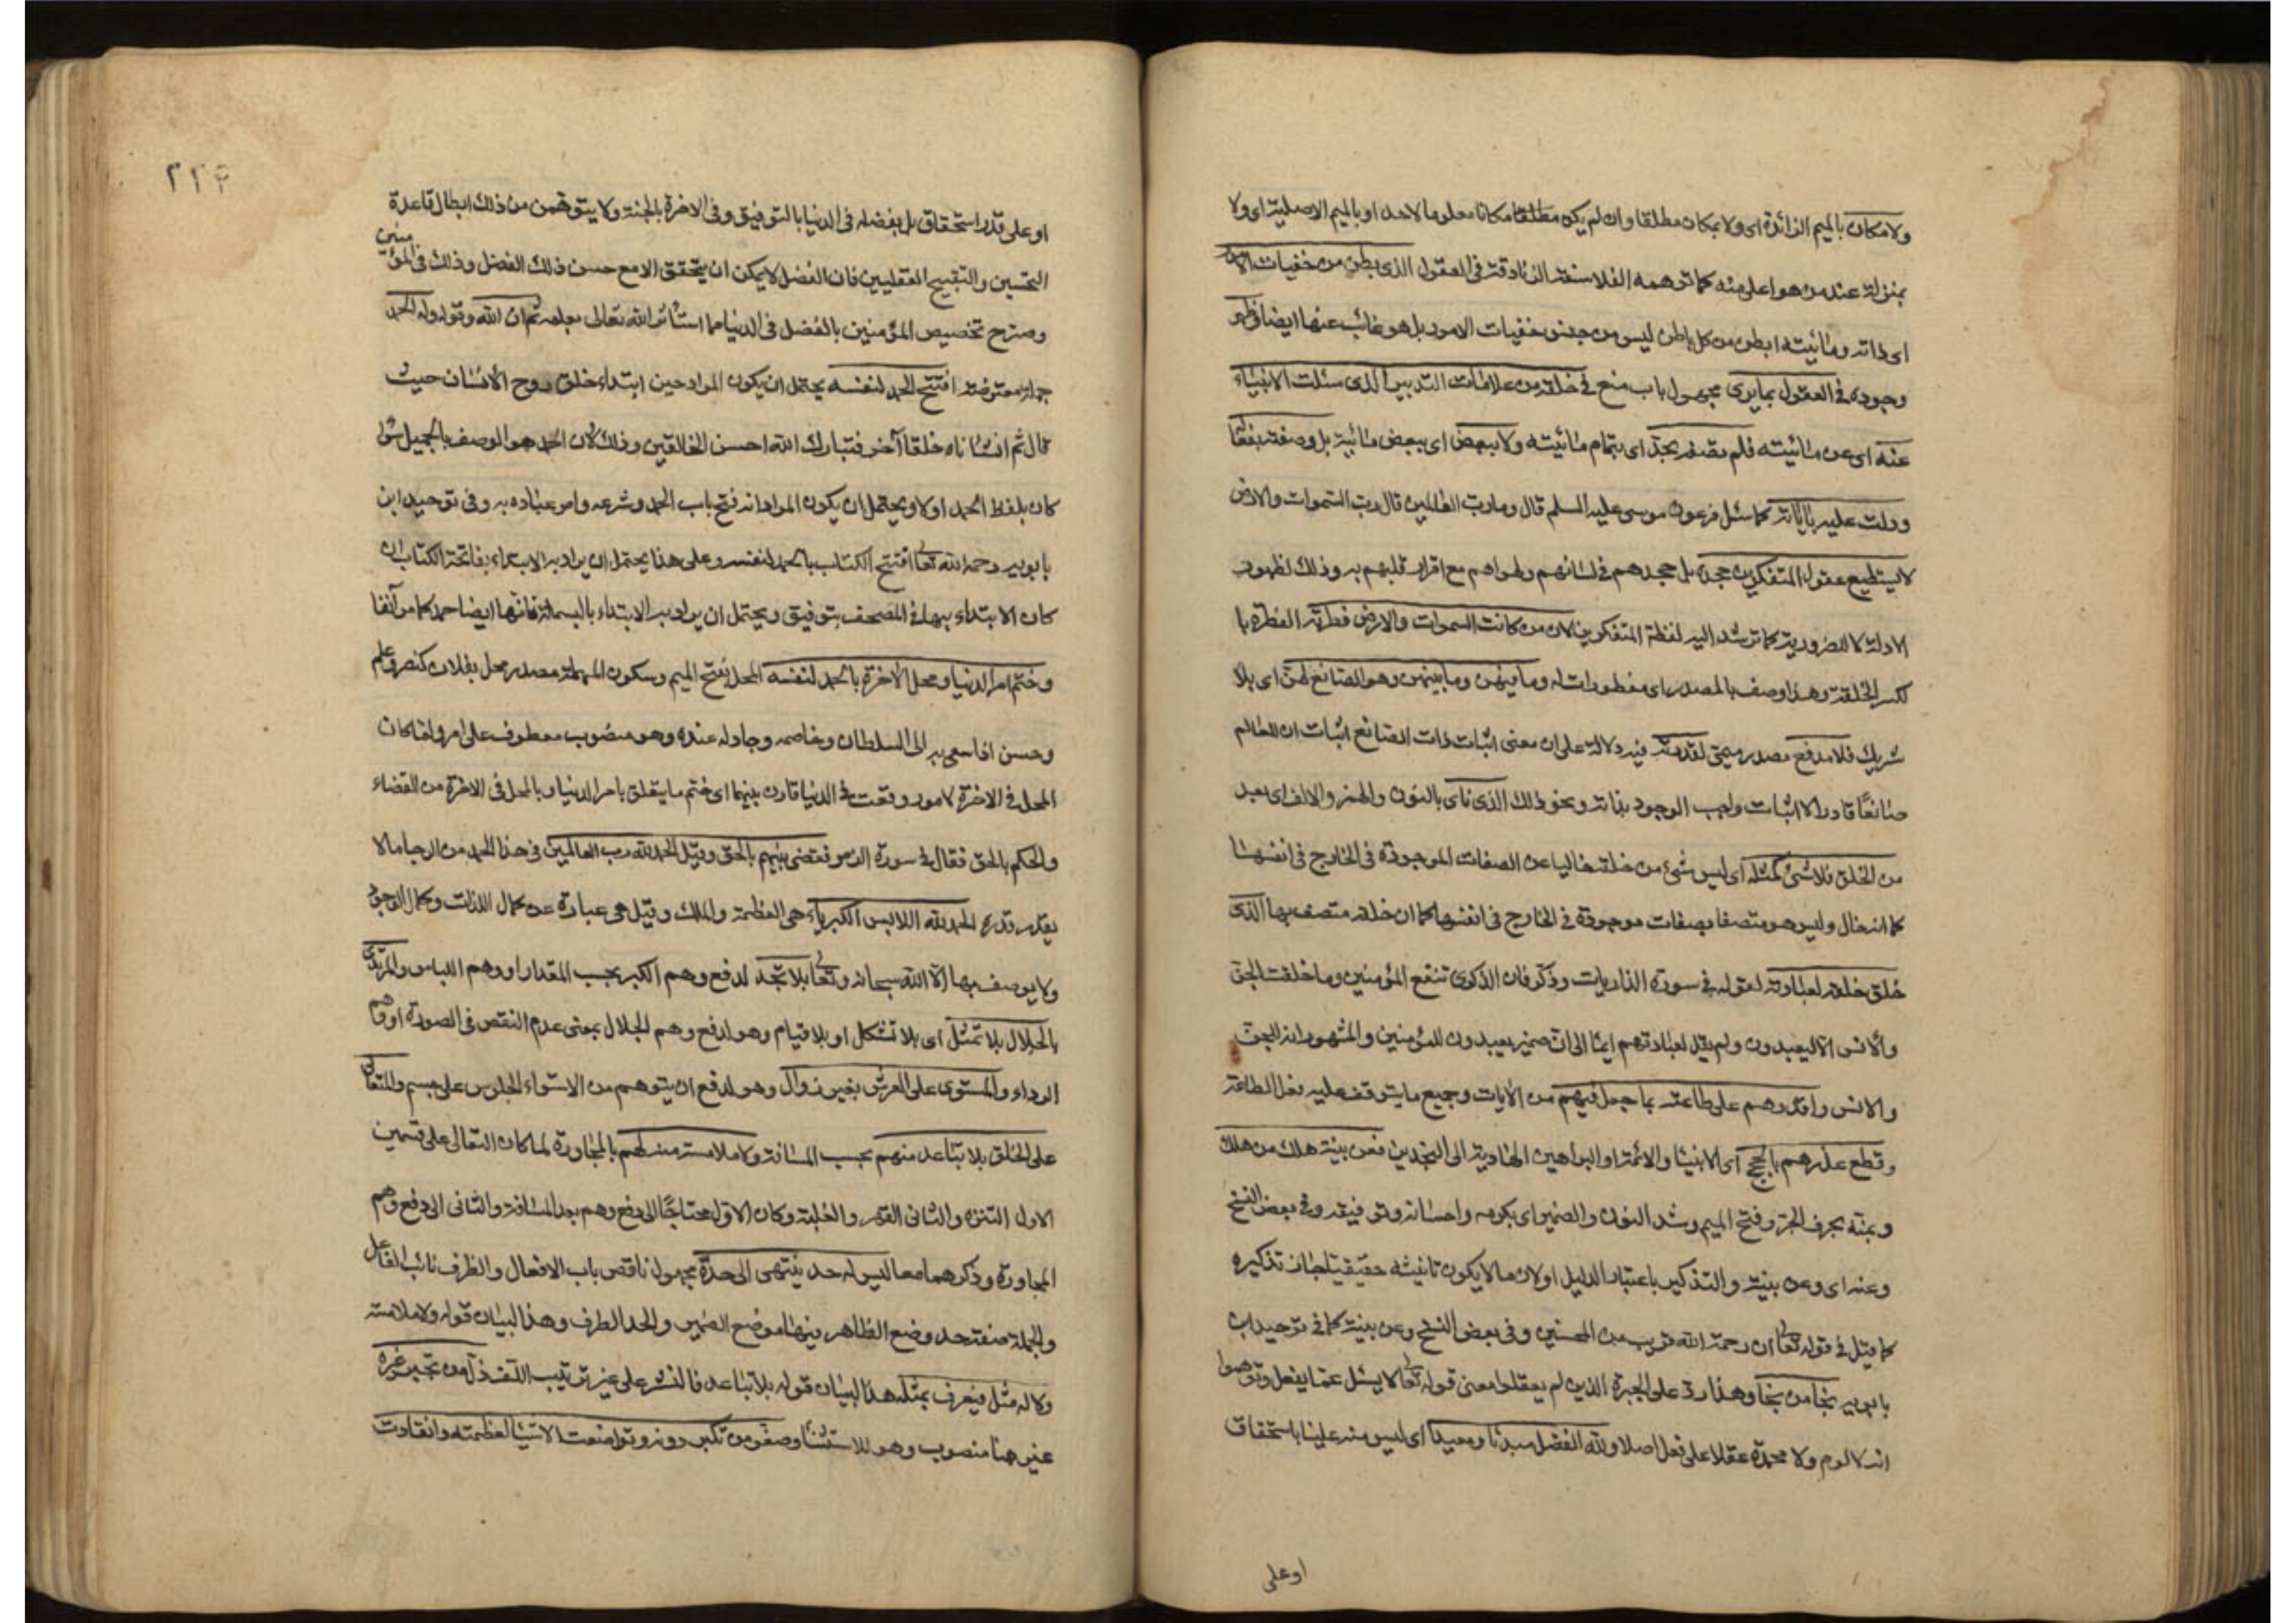 ولا مكان بالميم الزائدة اى ولا بمكان مطلقا وان لم يكن مطلقا مكانا معلوما لاحد او بالميم الاصلية اى ولا
بمنزلة عند من هو اعلى منه كما توهمه الفلاسفة الزنادقة فى العقول الذى بطن من خفيات الامور
اى ذاته ومائيته ابطن من كل باطن ليس من جنس خفيات الامور بل هو غائب عنها ايضا وظهر
وجوده فى العقول بما يرى مجهول باب منع فى خلقه من علامات التدبير الذى سئلت الانبياء
عنه اى عن مائيته فلم تصفه بحد اى بتمام مائيته ولا ببعض اى ببعض مائيته بل وصفته بفعاله
ودلت عليه باياته كما سئل فرعون موسى عليه السلم قال وما رب العالمين قال رب السموات والارض
لا يستطيع عقول المتفكرين جحده بل جحدهم فى لسانهم وهواهم مع اقرار قلبهم به وذلك لظهور
الادلة لا للضرورية كما ترشد اليه لفظة المتفكرين لان من كانت السموات والارض فطرته الفطرة با
لكسر الخلقة وهذا وصف بالمصدر اى مفطورات له وما فيهن وما بينهن وهو الصانع لهن اى بلا
شريك فلا مدفع مصدر ميمى لقدرته فيه دلالة على ان معنى اثبات ذات الصانع اثبات ان للعالم
صانعًا قادرا لا اثبات واجب الوجود بذاته ونحو ذلك الذى نأى بالنون والهمز والالف اى بعد
من الخلق فلا شئ كمثله اى ليس شئ من خلقه خاليا عن الصفات الموجودة فى الخارج فى انفسها
كما انه خال وليس هو متصفا بصفات موجودة فى الخارج فى انفسها كما ان خلقه متصف بها الذى
خلق خلقه لعبادته لقوله فى سورة الذاريات وذكر فان الذكرى تنفع المؤمنين وما خلقت الجن
والانس الا ليعبدون ولم يقل لعبادتهم ايماء الى ان ضمير يعبدون للمؤمنين والمشهور انه للجن
والانس واقدرهم على طاعته بما جعل فيهم من الآيات وجميع ما يتوقف عليه فعل الطاعة
وقطع عذرهم بالحجج اى الانبياء والائمة او البراهين الهادية الى النجدين فعن بينة هلك من هلك
وبمنه بحرف الجر وفتح الميم وشد النون والضمير اى بكرمه واحسانه وتوفيقه وفى بعض النسخ
وعنه اى وعن بينة والتذكير باعتبار الدليل او لان ما لا يكون تانيثه حقيقيا جاز تذكيره
كما قيل فى قوله تعالى ان رحمة الله قريب من المحسنين وفى بعض النسخ وعن بينة كما فى توحيد ابن
بابويه نجا من نجا وهذا رد على الجبرة الذين لم يعقلوا معنى قوله تعالى لا يسئل عما يفعل وتوهموا
انه لا لوم ولا محمدة عقلا على فعل اصلا ولله الفضل مبدئا ومعيدا اى ليس منه علينا باستحقاق
او على
٢٢٤
او على قدر استحقاق بل بفضله فى الدنيا بالتوفيق وفى الاخرة بالجنة ولا يتوهمن من ذلك ابطال قاعدة
التحسين والتقبيح العقليين فان الفضل لا يمكن ان يتحقق الا مع حسن ذلك الفضل وذلك فى المؤمنين
وصرح تخصيص المؤمنين بالفضل فى الدنيا مما استأثر الله تعالى بعلمه ثم ان الله وقوله وله الحمد
جملة معترضة افتتح الحمد لنفسه يحتمل ان يكون المراد حين ابتداء خلق روح الانسان حيث
قال ثم انشاناه خلقا آخر فتبارك الله احسن الخالقين وذلك لان الحمد هو الوصف بالجميل سواء
كان بلفظ الحمد او لا ويحتمل ان يكون المراد انه فتح باب الحمد وشرعه وامر عباده به وفى توحيد ابن
بابويه رحمه الله تعالى افتتح الكتاب بالحمد لنفسه وعلى هذا يحتمل ان يراد به الابتداء بفاتحة الكتاب ان
كان الابتداء بها فى المصحف بتوفيق ويحتمل ان يراد به الابتداء بالبسملة فانها ايضا حمد كما مر آنفا
وختم امر الدنيا ومحل الآخرة بالحمد لنفسه المحل بفتح الميم وسكون المهملة مصدر محل بفلان كنصر وعلم
وحسن اذا سعى به الى السلطان وخاصمه وجادله عنده وهو منصوب معطوف على امر ولما كان
المحل فى الاخرة لامور وقعت فى الدنيا قارن بينهما اى ختم ما يتعلق بامر الدنيا وبالمحل فى الاخرة من القضاء
والحكم بالحق فقال فى سورة الزمر فقضى بينهم بالحق وقيل الحمد لله رب العالمين فى هذا الحمد من الرجاء ما لا
يقدر قدره الحمد لله اللابس الكبرياء هى العظمة والملك وقيل هى عبارة عن كمال الذات وكمال الوجود
ولا يوصف بها الا الله سبحانه وتعالى بلا تجسد لدفع وهم الكبر بحسب المقدار او وهم اللباس والمرتدى
بالجلال بلا تمثيل اى بلا تشكل او بلا قيام وهو لدفع وهم الجلال بمعنى عدم النقص فى الصورة او وهم
الرداء والمستوى على العرش بغير زوال وهو لدفع ان يتوهم من الاستواء الجلوس على جسم والمتعالى
على الخلق بلا تباعد منهم بحسب المسافة ولا ملامسة منه لهم بالمجاورة لما كان التعالى على قسمين
الاول التنزه والثانى القهر والغلبة وكان الاول محتاجًا الى دفع وهم بعد المسافة والثانى الى دفع وهم
المجاورة وذكرهما معا ليس له حد ينتهى الى حده مجهول ناقص باب الافعال والظرف نائب الفاعل
والجملة صفة حد وضع الظاهر فيها موضع الضمير والحد الطرف وهذا البيان قوله ولا ملامسة
ولا له مثل فيعرف بمثله هذا البيان قوله بلا تباعد فالنشر على غير ترتيب اللف ذل من تجبر غيره
غير هنا منصوب وهو للاستثناء وصغر من تكبر دونه وتواضعت الاشياء لعظمته وانقادت